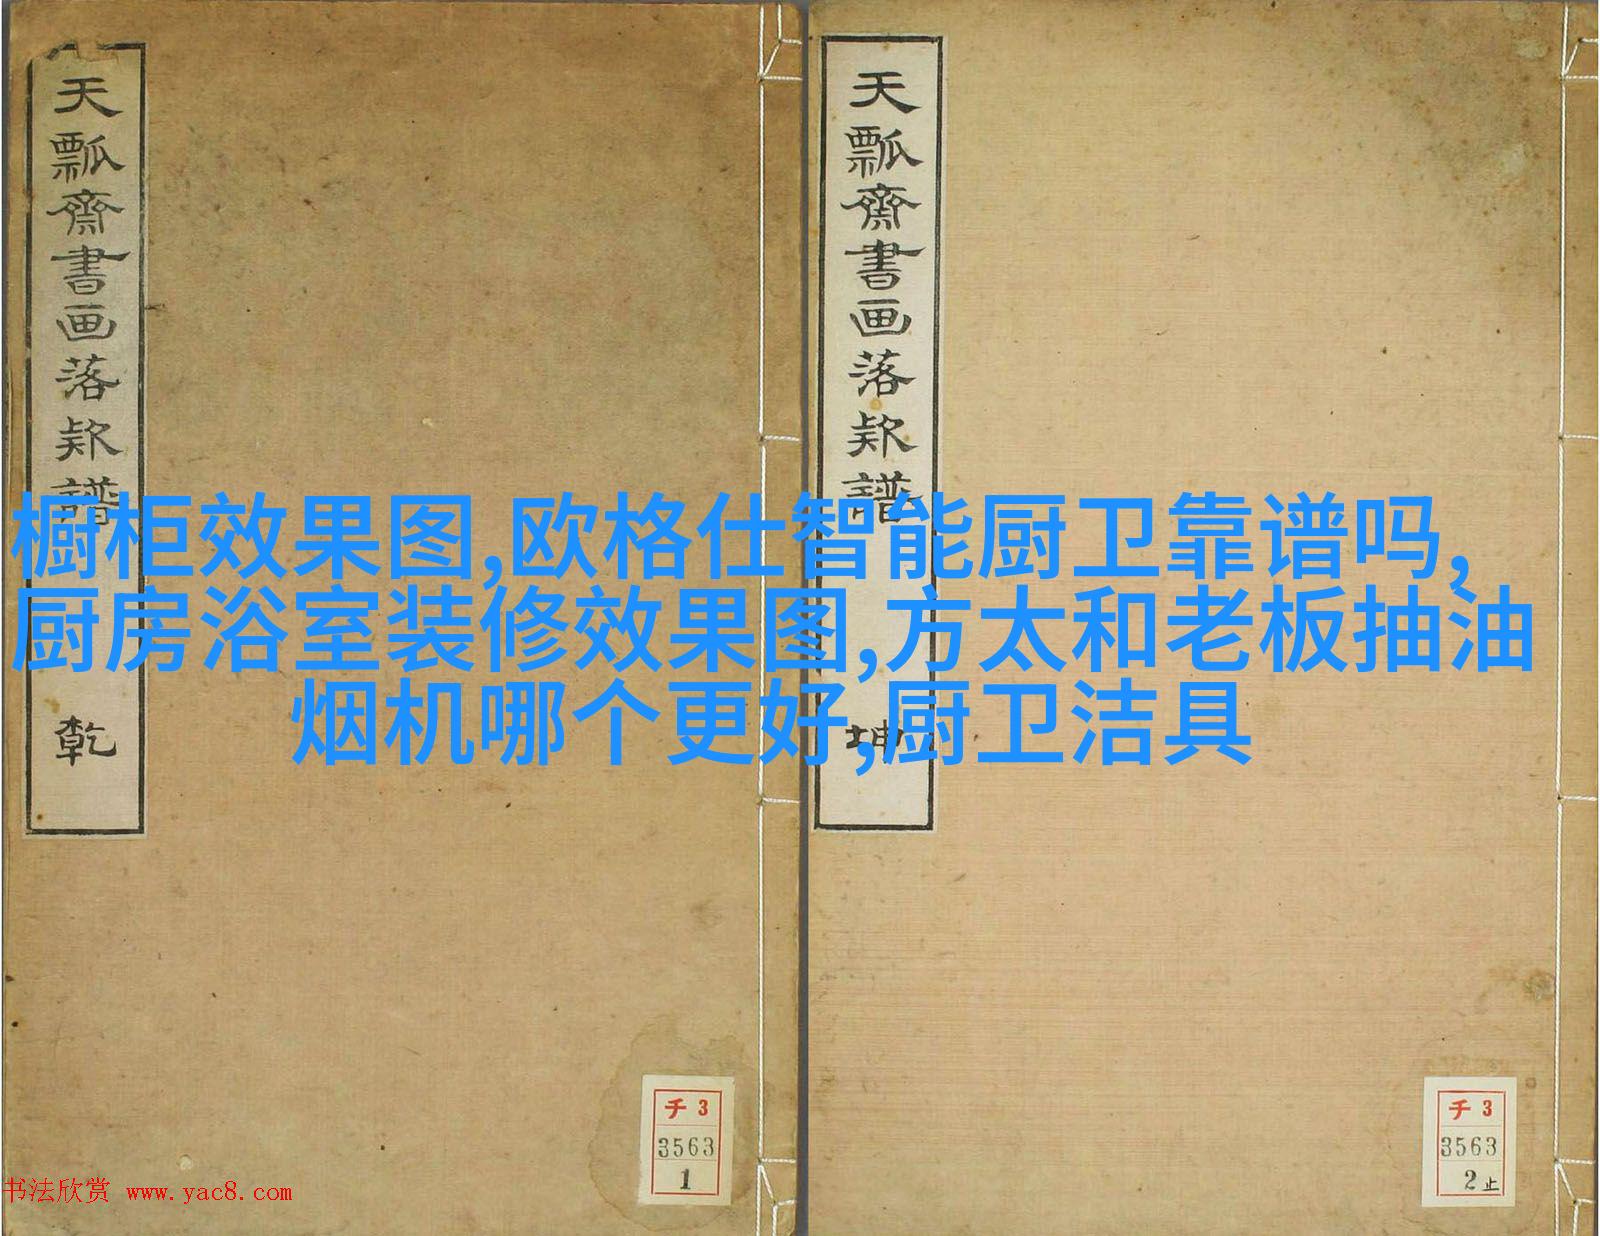 天瓢齋書画落款譜
乾
天瓢齋書画落款譜
坤
橱柜效果图,欧格仕智能厨卫靠谱吗,
厨房浴室装修效果图,方太和老板抽油
烟机哪个更好,厨卫洁具
チ3
3563
1
チ3
3563
2止
书法欣赏 www.yac8.com